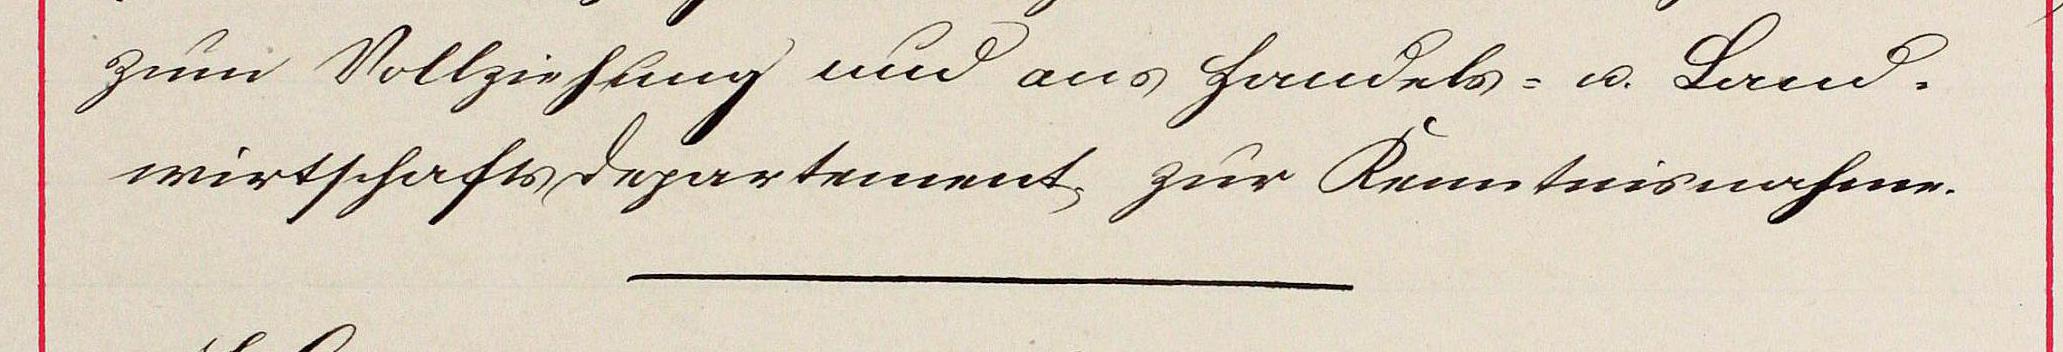 zum Vollziehung und ans Handels- u. Land-
wirtschaftsdepartement, zur Kenntnisnahme.